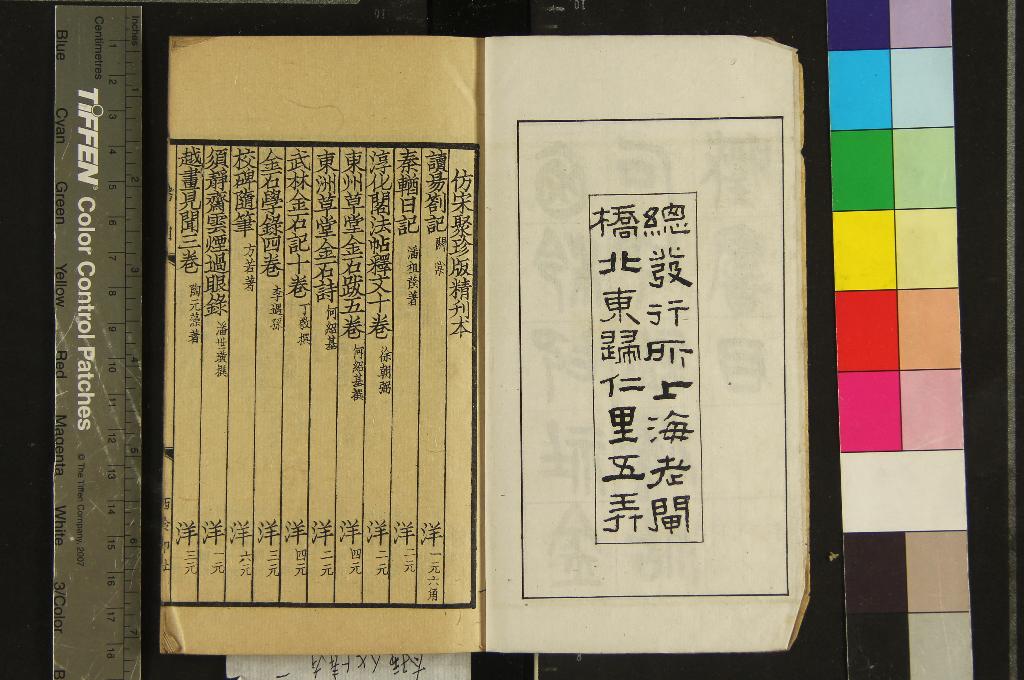 總發行所上海老閘
橋北東歸仁里五弄
仿宋聚珍版精刊本
讀易劄記 關棠 洋一元六角
秦輶日記 潘祖蔭著 洋二元
淳化閣法帖釋文十卷 徐朝弼 洋二元
東州草堂金石跋五卷 何紹基撰 洋四元
東洲草堂金石詩 何紹基 洋二元
武林金石記十卷 丁敬撰 洋四元
金石學錄四卷 李遇孫 洋三元
校碑隨筆 方若著 洋六元
須靜齋雲煙過眼錄 潘世璜撰 洋一元
越畫見聞三卷 陶元藻著 洋三元
西泠印社
Inches
Centimetres
TIFFEN Color Control Patches
© The Tiffen Company, 2007
Blue Cyan Green Yellow Red Magenta White 3/Color B